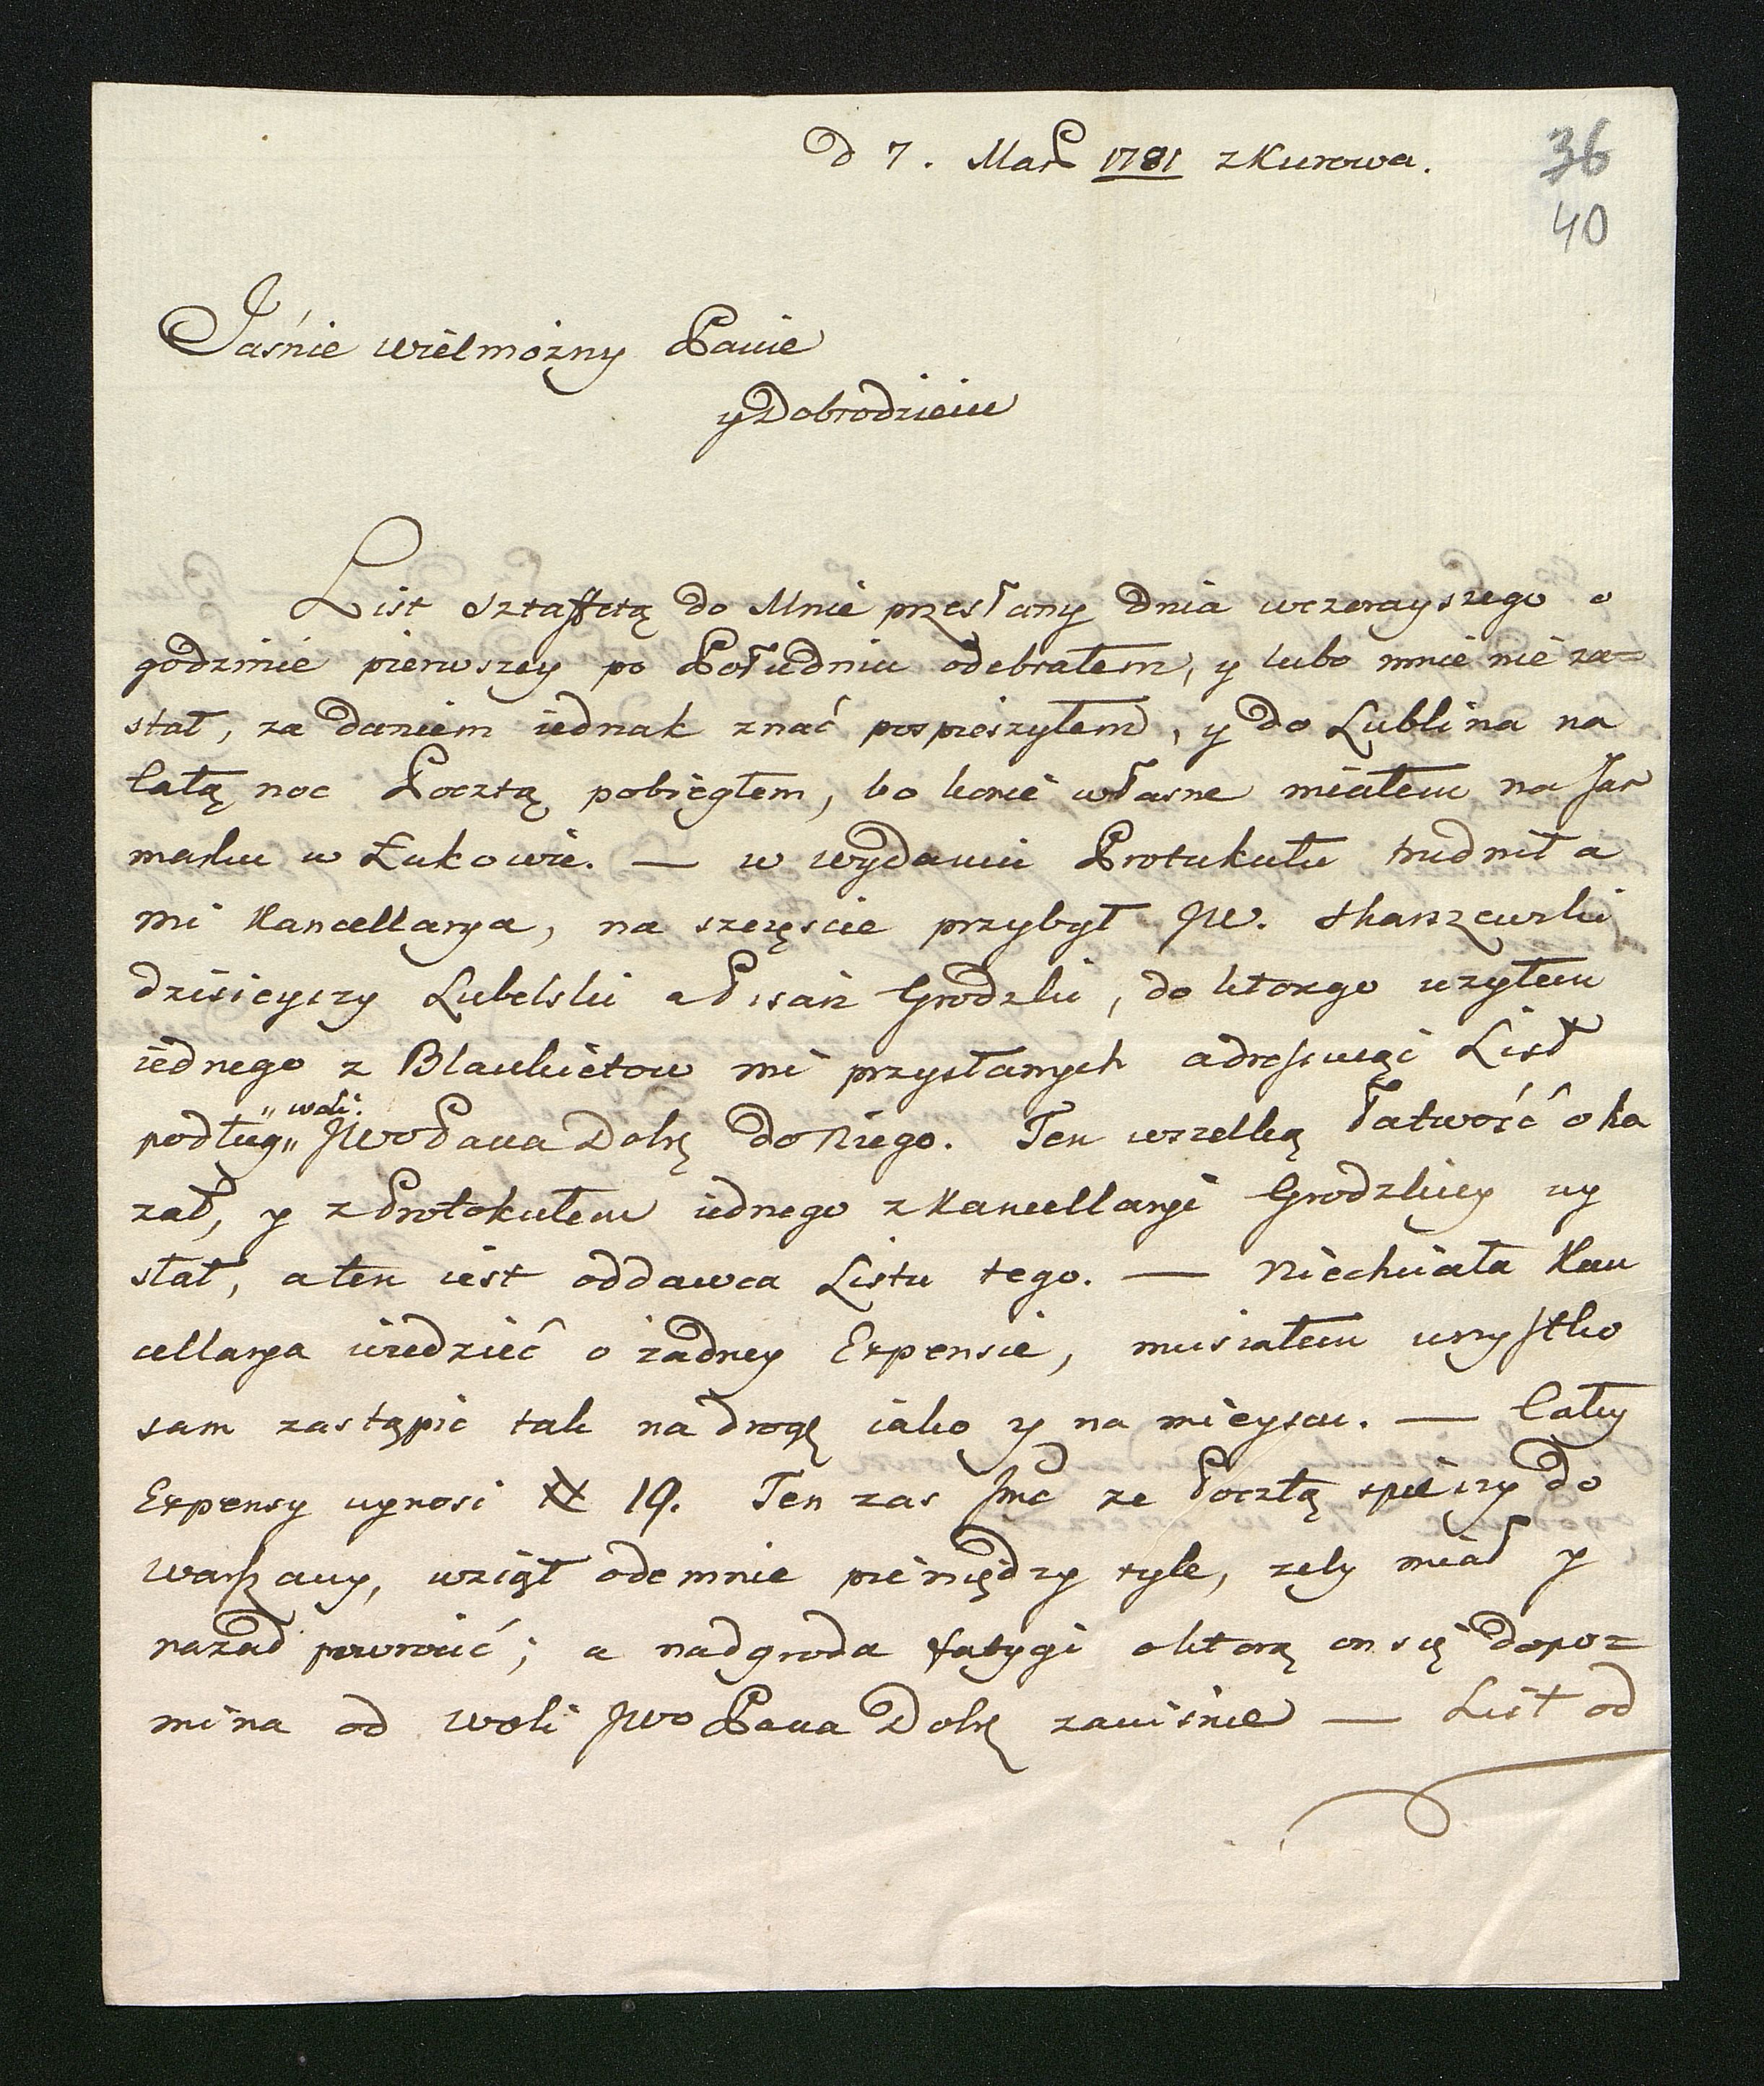 D 7. Mar 1781 z Kurowa.
36
40
Jaśnie wielmożny Panie
y Dobrodzieiu
List sztaffetą do Mnie przesłany dnia wczorayszego o
godzinie pierwszey po Południu odebrałem, y lubo mnie nie za=
stał, za daniem iednak znać pospieszyłem, y do Lublina na
Całą noc Pocztą pobiegłem, bo konie własne miałem na Jar
marku w Łukowie. — w wydaniu Protukułu trudniła
mi Kancellarya, na szczęście przybył JW. Skarszewski
dzisieyszy Lubelski Pisarz Grodzki, do ktorego użyłem
iednego z Blankietow mi przysłanych adressuiąc List
podług „ woli. JWo Pana Dobr do Niego. Ten wszelką łatwość oka
zał, y z Protokułem iednego z Kancellaryi Grodzkiey wy
słał, a ten iest oddawca Listu tego. — Niechciała Kan
cellarya wiedzieć o żadney Expensie, musiałem wszystko
sam zastąpić tak na drogę iako y na mieyscu. — Cały
Expensy wynosi # 19. Ten zas Jmc ze Pocztą spieszy do
Warszawy, wziął odemnie pieniędzy tyle, zeby miał y
nazad powrocić; a nadgroda fatygi o ktorą on się dopo=
mina od woli JWo Pana Dobr zawisnie — List od